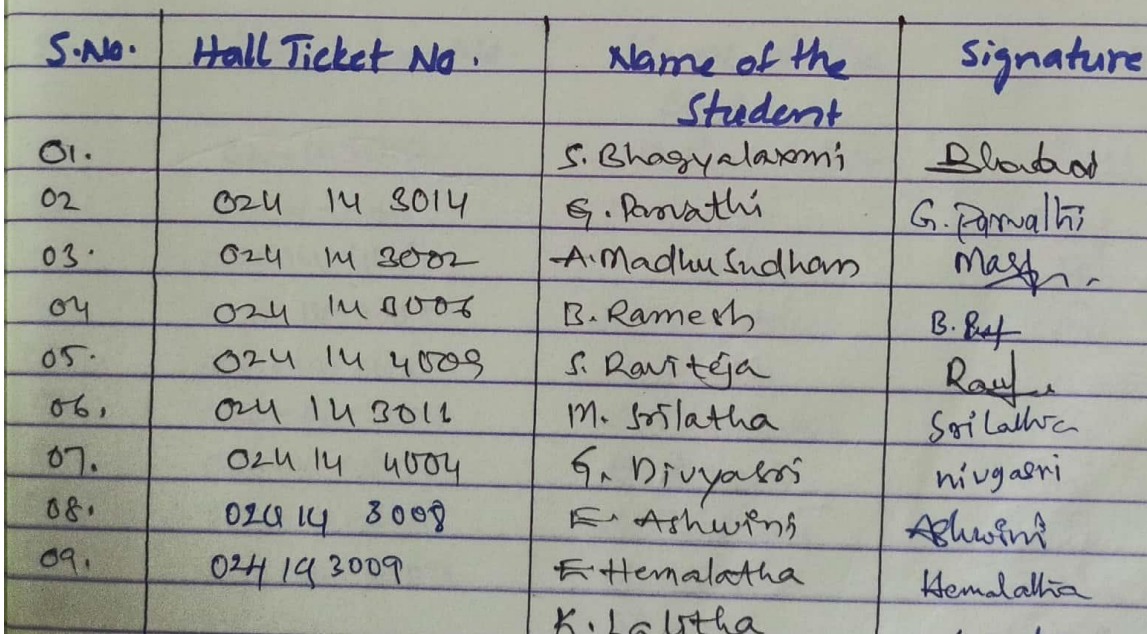 S.No. Hall Ticket No. Name of the Student Signature
01. S. Bhagyalaxmi
02 024 14 3014 G. Parvathi G. Parvathi
03. 024 14 3002 A. Madhu Sudhan
04 024 14 3006 B. Ramesh
05. 024 14 4009 S. Raviteja
06. 024 14 3011 M. Srilatha Srilatha
07. 024 14 4004 G. Divyasri
08. 024 14 3008 E. Ashwini Ashwini
09. 024 14 3009 E Hemalatha Hemalatha
K. Lalitha